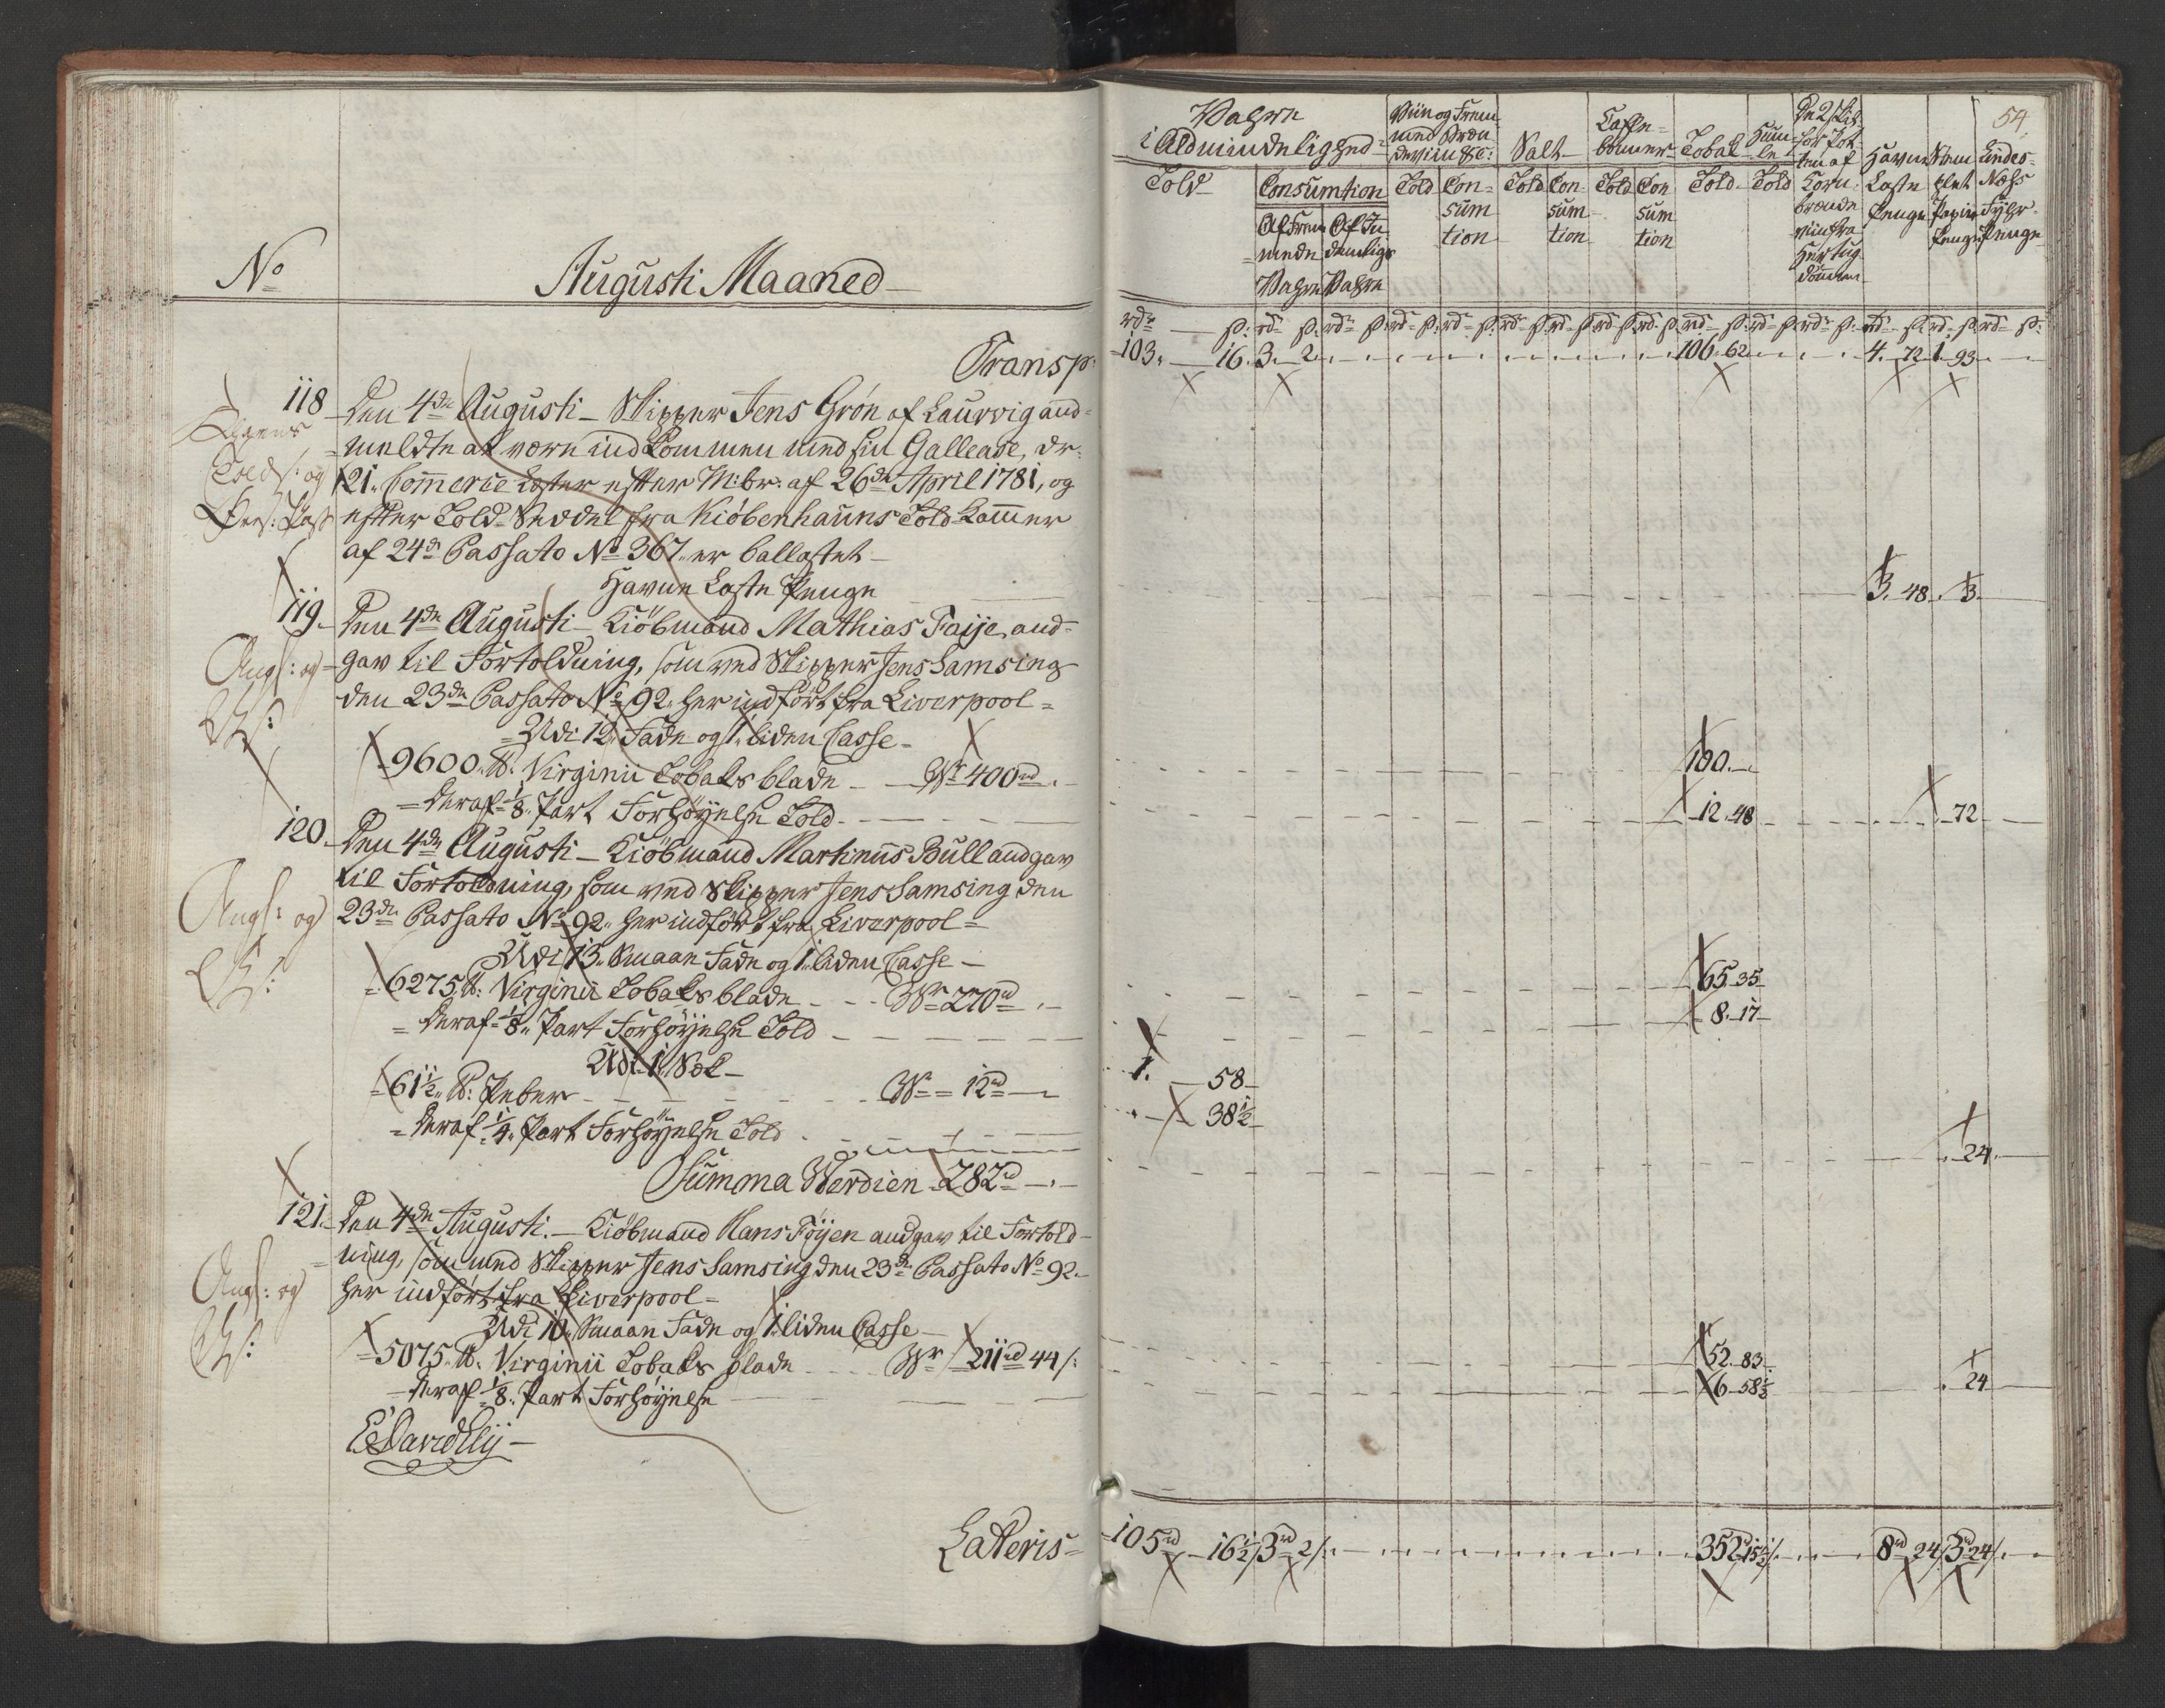 No
Augusti Maaned
Transp:
118
Den 4de Augusti - Skipper Jens Grøn af Laurvig and=
=meldte at være indkommen med sin Gallease, dr:
21. Commerce Læster efter M:br: af 26de April 1781, og
efter Told-Seddel fra Kiøbenhauns Told-Kammer
af 24de Passato No 367 er ballastet
Havne Læste Penge
119.
Den 4de Augusti - Kiøbmand Mathias Faije, and=
gav til Fortoldning, som med Skipper Jens Samsing
den 23de Passato No 92. her indført fra Liverpool =
= Udi 12. Fade og 1. liden Casse =
9600. lb. Virginii Tobaks blade - Wr 400rd. -
= deraf 1/8. Part Forhøyelse Told -
120.
Den 4de Augusti - Kiøbmand Martinus Bull andgav
til Fortoldning, som med Skipper Jens Samsing den
23de Passato No 92. her indført fra Liverpool =
Udi 13. Smaae Fade og 1. liden Casse -
= 6275 lb: Virginii Tobaks blade - - Wr 270rd. -
= deraf 1/8. Part Forhøyelse Told -
Udi 1. Sæk -
= 61 1/2. lb: Peber - Wr = 12rd -
= deraf 1/4. Part Forhøyelse Told
Summa Werdien 282rd -
121.
Den 4de Augusti. - Kiøbmand Hans Føyen andgav til Fortold=
=ning, som med Skipper Jens Samsing den 23de Passato No 92.
her indført fra Liverpool =
Udi 10. Smaae Fade og 1. liden Casse -
= 5075. lb. Virginii Tobaks blade - Wr 211rd 44/:
= deraf 1/8. Part Forhøyelse
Lateris =
54.
Vahre
i Aldmindelighed =
Told
Consumtion
Af Frem=
=mede
Vahre
Af In=
denlige
Vahre
Viin og Frem
med Bræn
deviin &c:
Told
Con=
sum
tion
Salt
Told
Con
sum
tion
Caffe=
bønner
Told
Con
sum
tion
Tobak
Told
Hum=
le
Told
Korn=
brænde
viin fra
Hertug
dømmene
Havne
Læste
Penge
Stem
plet
Papiirs
Penge
Lindes=
Næss
Fyhr=
Penge
103. 16. 3. 2. 106. 62 4. 72 1. 93
3. 48. 3.
100. -
12. 48 72
65. 35
8. 17
1. 58
38 1/2
24.
52. 83
6. 58 1/2 24
105rd 16 1/2/ 3rd 2/: 352rd 15 1/2/ 8rd 24/ 3rd 24/: